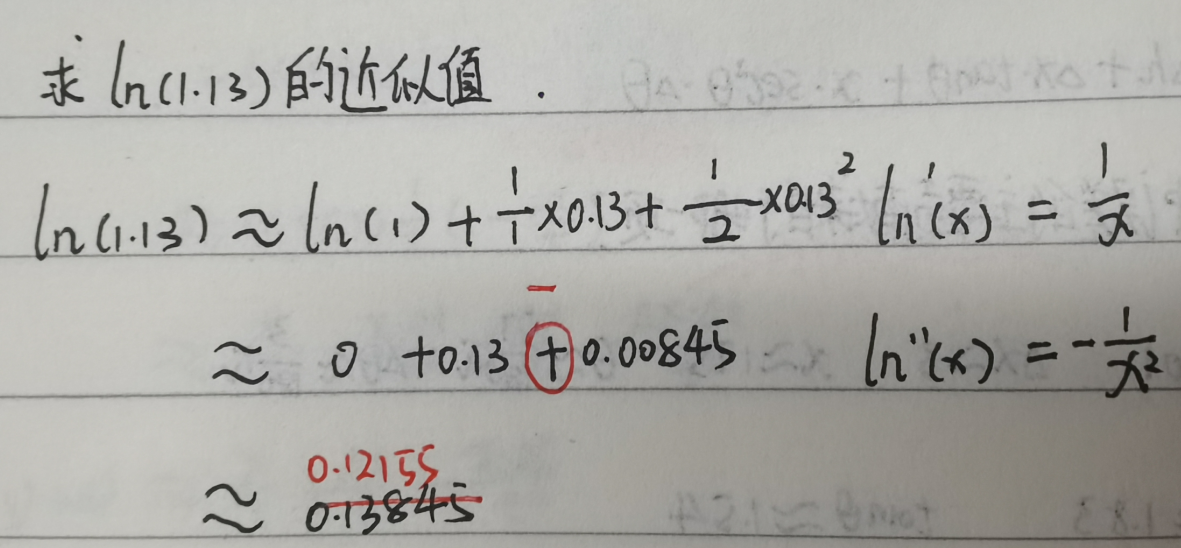 求 ln(1.13) 的近似值.
ln(1.13) ≈ ln(1) + 1/1 ×0.13 + 1/2 ×0.13² ln'(x) = 1/x
−
≈ 0 +0.13 + 0.00845 ln''(x) = -1/x²
0.12155
≈ 0.13845